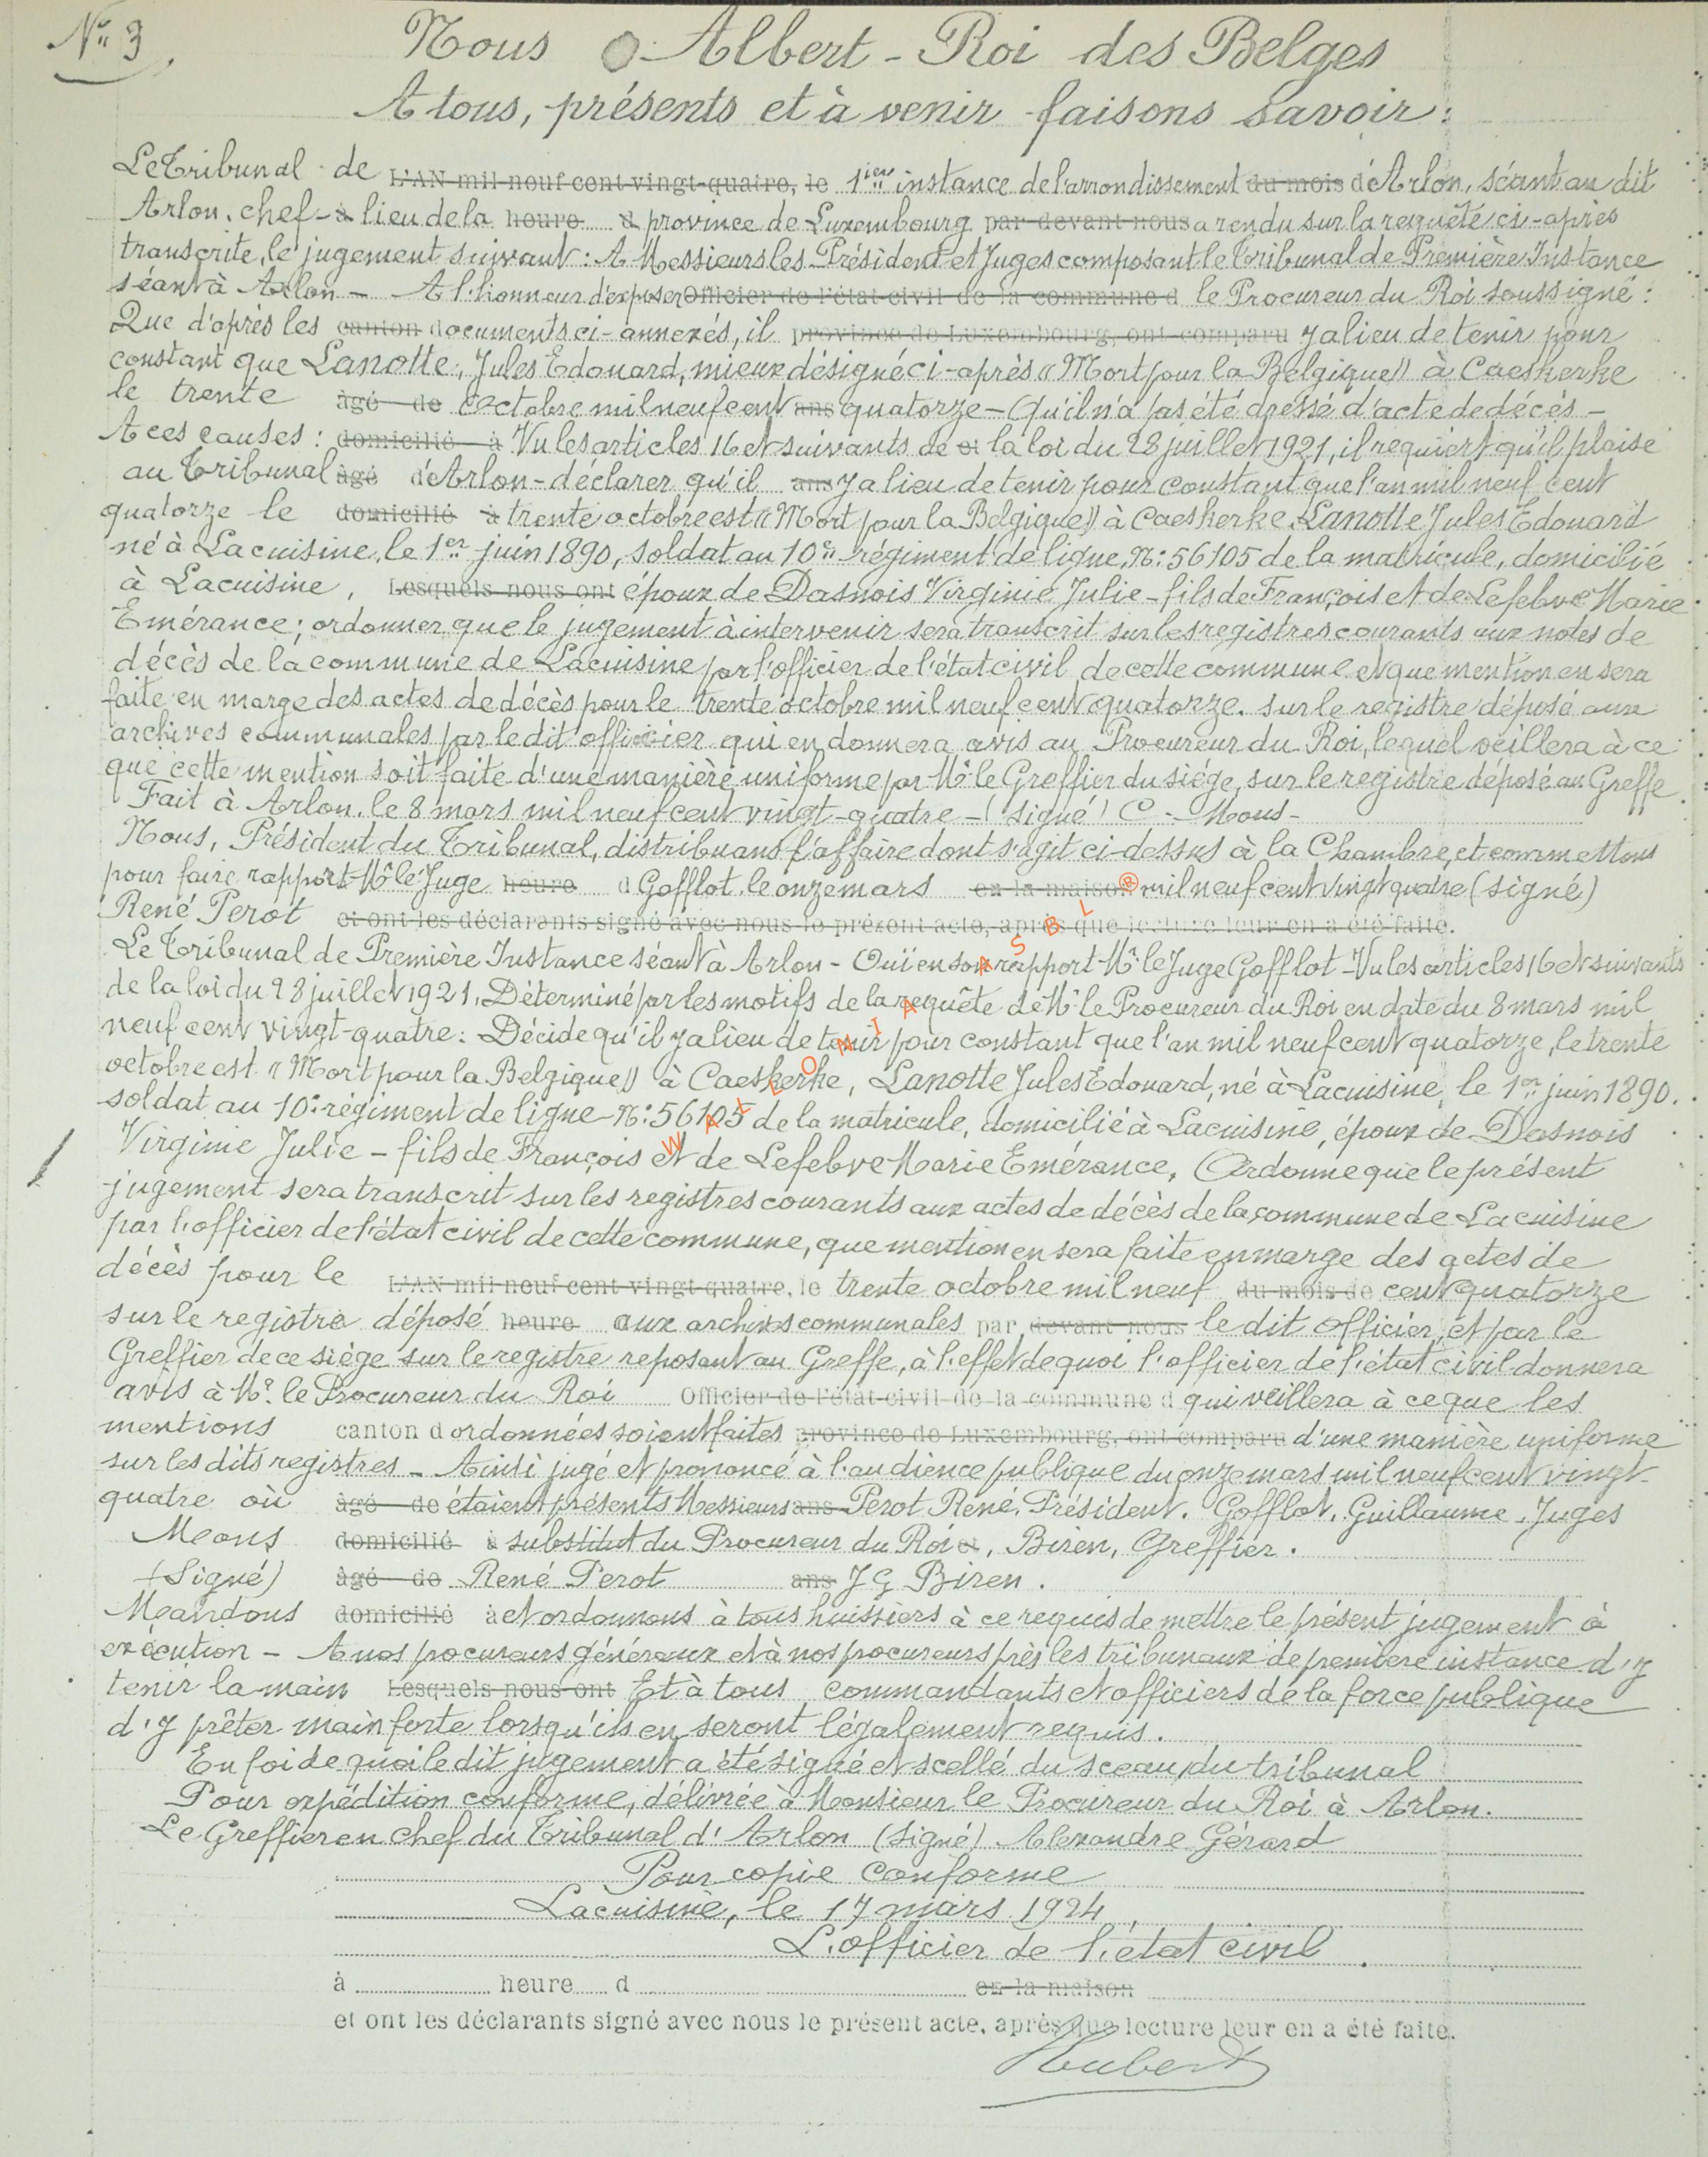 N° 3
Nous Albert - Roi des Belges
A tous, présents et à venir faisons savoir :
Le Tribunal de L'AN mil neuf cent vingt-quatre, le 1ier instance de l'arrondissement du mois d'Arlon, séant au dit
Arlon, chef-à lieu de la heure d province de Luxembourg par devant nous a rendu sur la requête ci-après
transcrite, le jugement suivant : A Messieurs les Président et Juges composant le Tribunal de Première Instance
séant à Arlon - A l'honneur d'exposer Officier de l'état civil de la commune d le Procureur du Roi soussigné :
Que d'après les canton documents ci-annexés, il province de Luxembourg, ont comparu y a lieu de tenir pour
constant que Lanotte, Jules Edouard, mieux désigné ci-après "Mort pour la Belgique" à Caeskerke
le trente âgé de octobre mil neuf cent ans quatorze - Qu'il n'a pas été dressé d'acte de décès -
A ces causes : domicilié à Vu les articles 16 et suivants de et la loi du 28 juillet 1921, il requiert qu'il plaise
au Tribunal âgé d'Arlon - déclarer qu'il ans y a lieu de tenir pour constant que l'an mil neuf cent
quatorze le domicilié à trente octobre est "Mort pour la Belgique" à Caeskerke, Lanotte Jules Edouard
né à Lacuisine, le 1er juin 1890, soldat au 10e régiment de ligne, N° 56105 de la matricule, domicilié
à Lacuisine, Lesquels nous ont époux de Dasnois Virginie Julie - fils de François et de Lefebve Marie
Emérance ; ordonner que le jugement à intervenir sera transcrit sur les registres courants aux notes de
décès de la commune de Lacuisine par l'officier de l'état civil de cette commune et que mention en sera
faite en marge des actes de décès pour le trente octobre mil neuf cent quatorze, sur le registre déposé aux
archives communales par le dit officier qui en donnera avis au Procureur du Roi, lequel veillera à ce
que cette mention soit faite d'une manière uniforme par Mr le Greffier du siége, sur le registre déposé au Greffe.
Fait à Arlon, le 8 mars mil neuf cent vingt-quatre - (signé) C. Mons -
Nous, Président du Tribunal, distribuons l'affaire dont s'agit ci-dessus à la Chambre, et commettons
pour faire rapport Mr le Juge heure d Gofflot, le onze mars en la maison mil neuf cent vingt quatre (signé)
René Perot et ont les déclarants signé avec nous le présent acte, après que lecture leur en a été faite.
Le Tribunal de Première Instance séant à Arlon - Ouï en son rapport Mr le Juge Gofflot - Vu les articles 16 et suivants
de la loi du 28 juillet 1921. Déterminé par les motifs de la requête de Mr le Procureur du Roi en date du 8 mars mil
neuf cent vingt-quatre : Décide qu'il y a lieu de tenir pour constant que l'an mil neuf cent quatorze, le trente
octobre est "Mort pour la Belgique" à Caeskerke, Lanotte Jules Edouard, né à Lacuisine, le 1er juin 1890.
soldat au 10e régiment de ligne - N° 56105 de la matricule, domicilié à Lacuisine, époux de Dasnois
Virginie Julie - fils de François et de Lefebve Marie Emérance, Ordonne que le présent
jugement sera transcrit sur les registres courants aux actes de décès de la commune de Lacuisine
par l'officier de l'état civil de cette commune, que mention en sera faite en marge des actes de
décès pour le L'AN mil neuf cent vingt-quatre, le trente octobre mil neuf du mois de cent quatorze
sur le registre déposé heure aux archives communales par devant nous le dit officier, et par le
Greffier de ce siège sur le registre reposant au Greffe, à l'effet de quoi l'officier de l'état civil donnera
avis à Mr. le Procureur du Roi Officier de l'état civil de la commune d qui veillera à ce que les
mentions canton d ordonnées soient faites province de Luxembourg, ont comparu d'une manière uniforme
sur les dits registres - Ainsi jugé et prononcé à l'audience publique du onze mars mil neuf cent vingt-
quatre où âgé de étaient présents Messieurs ans Perot René, Président. Gofflot, Guillaume, Juges
Mons domicilié à substitut du Procureur du Roi et, Biren, Greffier.
(Signé) âgé de René Perot ans J G Biren.
Mandons domicilié à et ordonnons à tous huissiers à ce requis de mettre le présent jugement à
exécution - A nos procureurs généraux et à nos procureurs près les tribunaux de première instance d'y
tenir la main Lesquels nous ont Et à tous commandants et officiers de la force publique
d'y prêter main forte lorsqu'ils en seront légalement requis.
En foi de quoi le dit jugement a été signé et scellé du sceau du tribunal
Pour expédition conforme, délivrée à Monsieur le Procureur du Roi à Arlon.
Le Greffier en chef du Tribunal d'Arlon (signé) Alexandre Gérard
Pour copie conforme
Lacuisine, le 17 mars 1924
L'officier de l'état civil
à heure d en la maison
et ont les déclarants signé avec nous le présent acte, après que lecture leur en a été faite.
Hubert
WALLONIA ASBL®